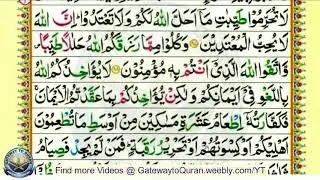 لَا تُحَرِّمُوْا طَيِّبٰتِ مَاۤ اَحَلَّ اللّٰهُ لَكُمْ وَلَا تَعْتَدُوْا ؕ اِنَّ اللّٰهَ
لَا يُحِبُّ الْمُعْتَدِيْنَ وَكُلُوْا مِمَّا رَزَقَكُمُ اللّٰهُ حَلٰلًا طَيِّبًا
وَّاتَّقُوا اللّٰهَ الَّذِيْۤ اَنْتُمْ بِهٖ مُؤْمِنُوْنَ لَا يُؤَاخِذُكُمُ اللّٰهُ
بِاللَّغْوِ فِيْۤ اَيْمَانِكُمْ وَلٰكِنْ يُّؤَاخِذُكُمْ بِمَا عَقَّدْتُّمُ الْاَيْمَانَ
فَكَفَّارَتُهٗۤ اِطْعَامُ عَشَرَةِ مَسٰكِيْنَ مِنْ اَوْسَطِ مَا تُطْعِمُوْنَ
اَهْلِيْكُمْ اَوْ كِسْوَتُهُمْ اَوْ تَحْرِيْرُ رَقَبَةٍ ؕ فَمَنْ لَّمْ يَجِدْ فَصِيَامُ
Find more Videos @ GatewaytoQuran.weebly.com/YT